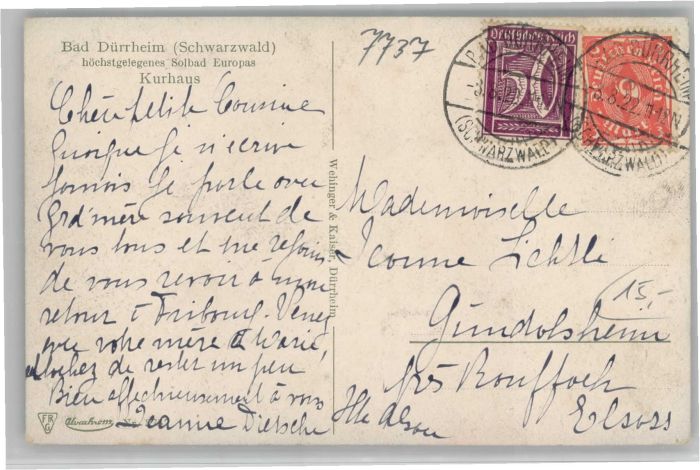 Bad Dürrheim (Schwarzwald)
höchstgelegenes Solbad Europas
Kurhaus
7737
Deutsches Reich
50
5
BAD DÜRRHEIM
8.22
(SCHWARZWALD)
DÜRRHEIM
8.22. 11-12 N
(SCHWARZWALD)
Chère petite Cousine
Quoique je n'écrive
jamais je parle avec
grd'mère souvent de
vous tous et me réjouis
de vous revoir à mon
retour à Fribourg. Venez
avec votre mère & Marie,
tâchez de rester un peu
Bien affectueusement à vous
Jeanne Dietsche
Wehinger & Kaiser, Dürrheim
Mademoiselle
Jeanne Lichtlé
Gundolsheim
près Rouffach
Hte Alsace
Elsass
15,-
FR
G